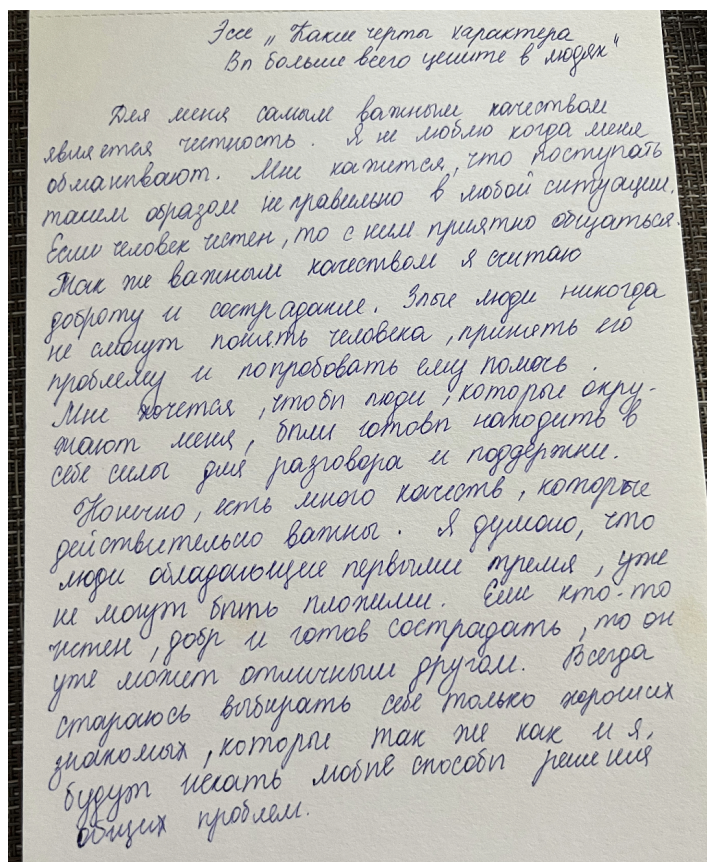 Эссе „Какие черты характера
Вы больше всего цените в людях"
Для меня самым важным качеством
является честность. Я не люблю когда меня
обманывают. Мне кажется, что поступать
таким образом неправильно в любой ситуации.
Если человек честен, то с ним приятно общаться.
Так же важным качеством я считаю
доброту и сострадание. Злые люди никогда
не смогут понять человека, принять его
проблему и попробовать ему помочь.
Мне хочется, чтобы люди, которые окру-
жают меня, были готовы находить в
себе силы для разговора и поддержки.
Конечно, есть много качеств, которые
действительно важны. Я думаю, что
люди обладающие первыми тремя, уже
не могут быть плохими. Если кто-то
честен, добр и готов сострадать, то он
уже может отличным другом. Всегда
стараюсь выбирать себе только хороших
знакомых, которые так же как и я,
будут искать любые способы решения
общих проблем.